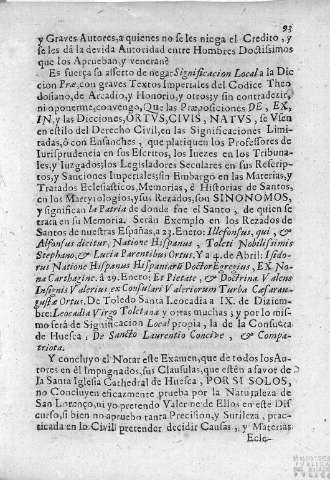 93
y Graves Autores, a quienes no se les niega el Credito, y
se les dà la devida Autoridad entre Hombres Doctissimos
que los Aprueban, y veneran?
Es fuerça su asserto de negar Significacion Local a la Dic
cion Præ, con graves Textos Imperiales del Codice Theo
dosiano, de Arcadio, y Honorio, y otros; y sin contradezir,
ni oponerme, convengo, Que las Præposiciones DE, EX,
IN, y las Dicciones, ORTVS, CIVIS, NATVS, se Vsen
en estilo del Derecho Civil, en las Significaciones Limi-
tadas, ò con Ensanches, que platiquen los Professores de
Iurisprudencia en sus Escritos, los Iuezes en los Tribuna-
les, y Iuzgados; los Legisladores Seculares en sus Rescrip-
tos, y Sanciones Imperiales; sin Embargo en las Materias, y
Tratados Eclesiasticos, Memorias, è Historias de Santos,
en los Martyrologios, y sus Rezados, son SINONOMOS,
y significan la Patria de donde fue el Santo, de quien se
trata en su Memoria. Seràn Exemplo en los Rezados de
Santos de nuestras Españas, a 23. Enero: Illefonsus, qui, &
Alfonsus dicitur, Natione Hispanus, Toleti Nobilissimis
Stephano, & Lucia Parentibus Ortus. Y a 4. de Abril: Isido-
rus Natione Hispanus Hispaniarū Doctor Egregius, EX No-
na Carthagine. à 29. Enero: Et Pietate, & Doctrina Valens
Insignis Valerius ex Consulari Valeriorum Turba Cæsarau-
gustæ Ortus. De Toledo Santa Leocadia a IX. de Diziem-
bre: Leocadia Virgo Toletana y otras muchas; y por lo mis-
mo serà de Significacion Local propia, la de la Consueta
de Huesca, De Sancto Laurentio Concive, & Compa-
triota.
Y concluyo el Notar este Examen, que de todos los Au-
tores en èl Impugnados, sus Clausulas, que estèn a favor de
la Santa Iglesia Cathedral de Huesca, POR SI SOLOS,
no Concluyen eficazmente prueba por la Naturaleza de
San Lorenço, ni yo pretendo Valerme de Ellos en este Dis
curso, si bien no apruebo tanta Precision, y Sutileza, prac-
ticada en lo Civil pretender decidir Causas, y Materias
Ecle-